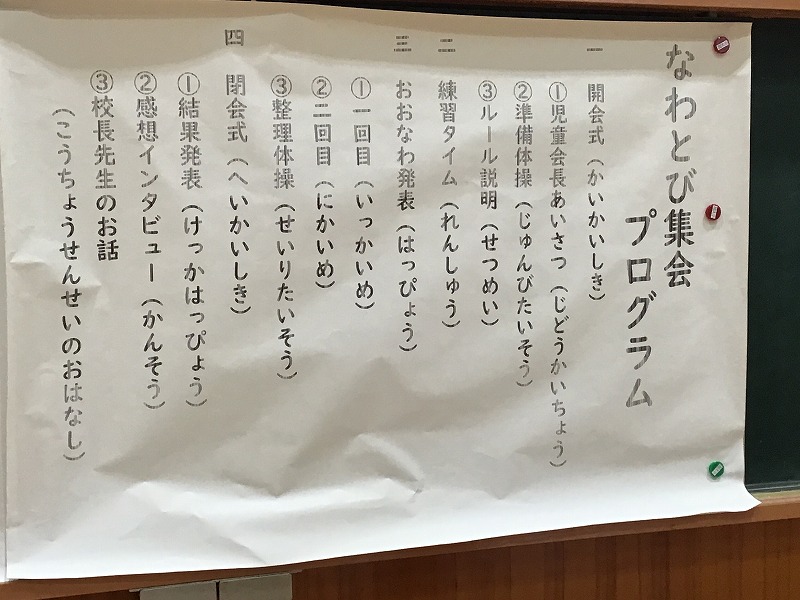 なわとび集会
プログラム
一 開会式（かいかいしき）
①児童会長あいさつ（じどうかいちょう）
②準備体操（じゅんびたいそう）
③ルール説明（せつめい）
二 練習タイム（れんしゅう）
三 おおなわ発表（はっぴょう）
①一回目（いっかいめ）
②二回目（にかいめ）
③整理体操（せいりたいそう）
四 閉会式（へいかいしき）
①結果発表（けっかはっぴょう）
②感想インタビュー（かんそう）
③校長先生のお話
（こうちょうせんせいのおはなし）